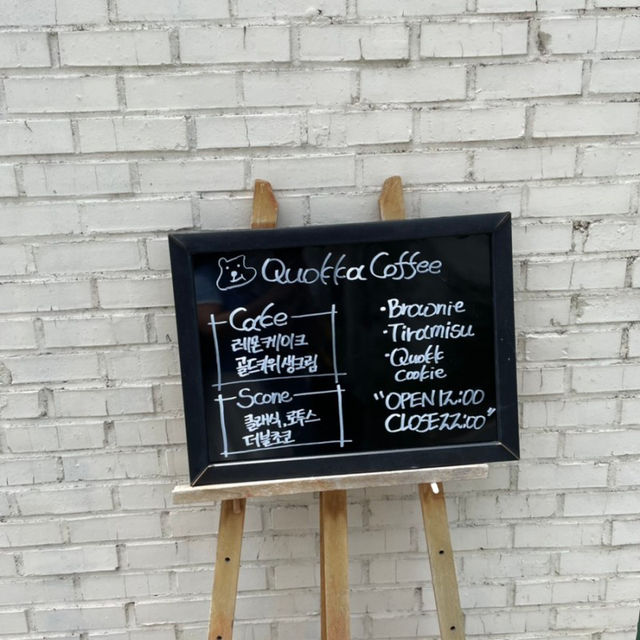 Quokka Coffee
Cake
레몬케이크
골드키위생크림
Scone
클래식, 로투스
더블초코
·Brownie
·Tiramisu
·Quokk
cookie
"OPEN 12:00
CLOSE 22:00"